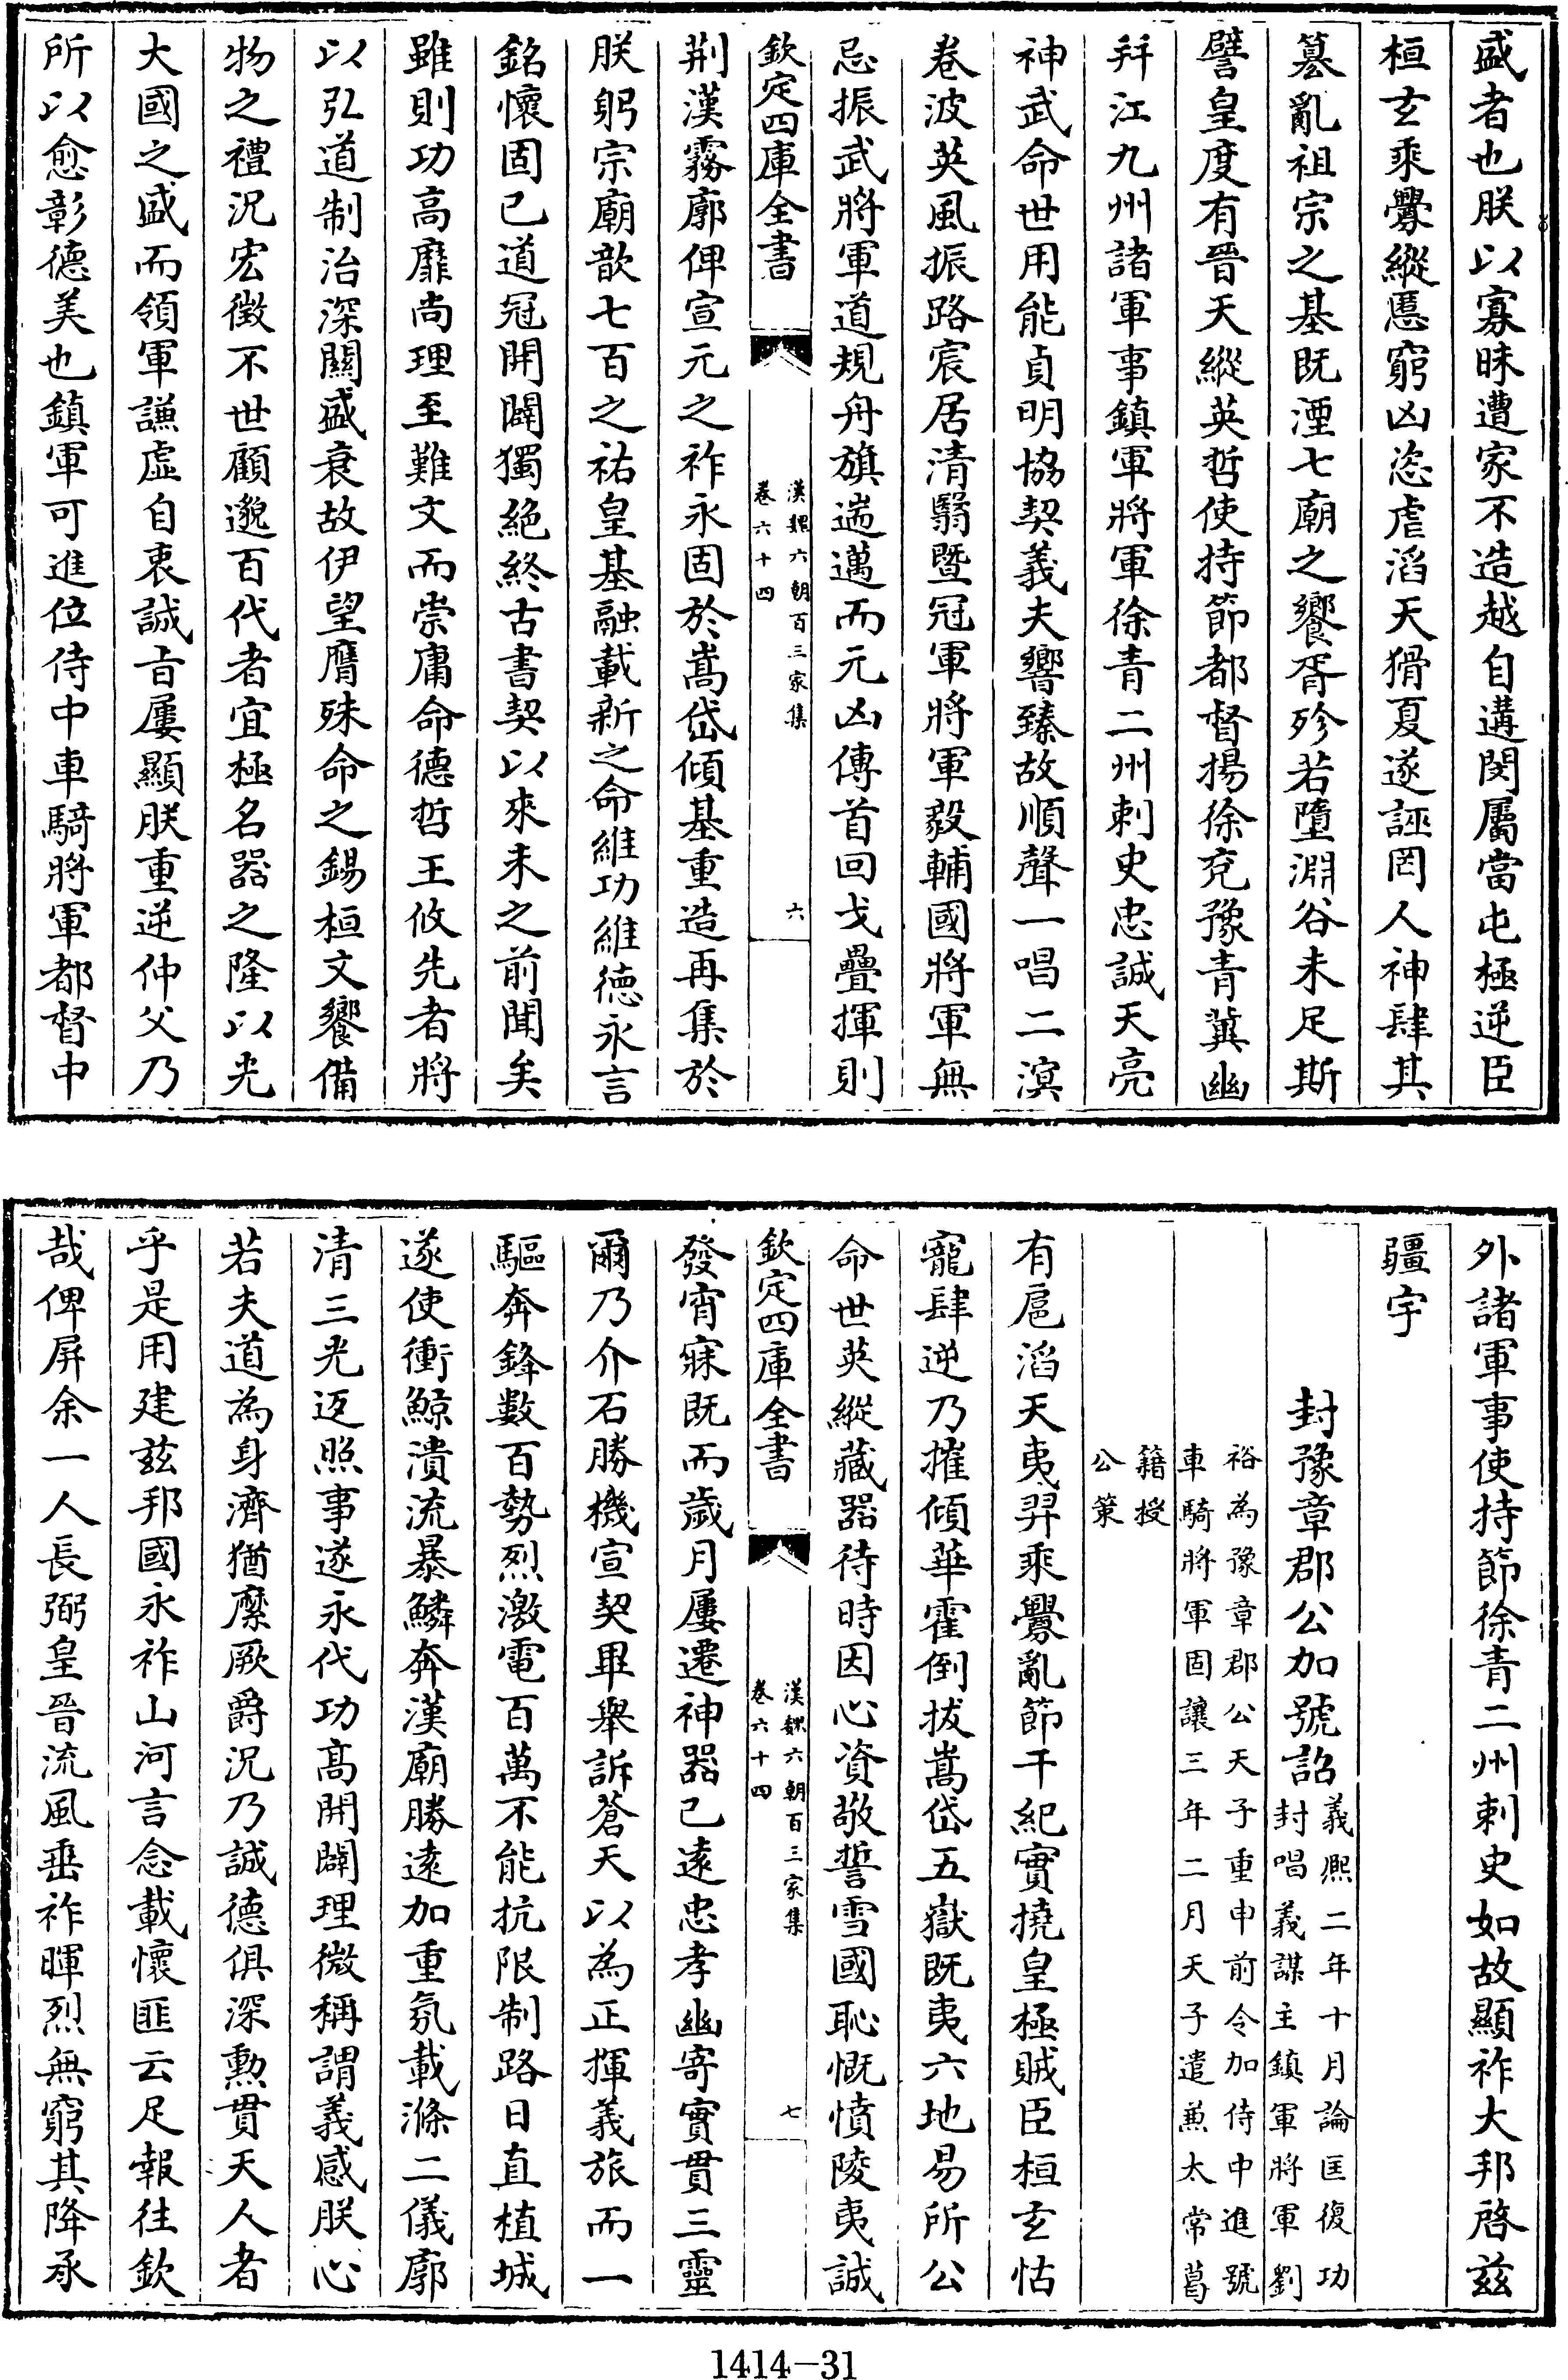 盛者也朕以寡昧遭家不造越自遘閔屬當屯極逆臣
桓玄乘釁縱慝窮凶恣虐滔天猾夏遂誣罔人神肆其
簒亂祖宗之基既湮七廟之饗胥殄若墮淵谷未足斯
譬皇度有晉天縱英哲使持節都督揚徐兗豫青冀幽
并江九州諸軍事鎮軍將軍徐青二州刺史忠誠天亮
神武命世用能貞明協契義夫響臻故順聲一唱二溟
卷波英風振路宸居清翳暨冠軍將軍毅輔國將軍無
忌振武將軍道規舟旗遄邁而元凶傳首回戈疊揮則
欽定四庫全書
漢魏六朝百三家集
卷六十四
六
荆漢霧廓俾宣元之祚永固於嵩岱傾基重造再集於
朕躬宗廟歆七百之祐皇基融載新之命維功維德永言
銘懷固已道冠開闢獨絶終古書契以來未之前聞矣
雖則功高靡尚理至難文而崇庸命德哲王攸先者將
以弘道制治深關盛衰故伊望膺殊命之錫桓文饗備
物之禮況宏徵不世顧邈百代者宜極名器之隆以光
大國之盛而領軍謙虛自衷誠旨屢顯朕重逆仲父乃
所以愈彰德美也鎮軍可進位侍中車騎將軍都督中
外諸軍事使持節徐青二州刺史如故顯祚大邦啓兹
疆宇
封豫章郡公加號詔
義熙二年十月論匡復功
封唱義謀主鎮軍將軍劉
裕為豫章郡公天子重申前令加侍中進號
車騎將軍固讓三年二月天子遣兼太常葛
籍授
公策
有扈滔天夷羿乘釁亂節干紀實撓皇極賊臣桓玄怙
寵肆逆乃摧傾華霍倒拔嵩岱五嶽既夷六地易所公
命世英縱藏器待時因心資敬誓雪國恥慨憤陵夷誠
欽定四庫全書
漢魏六朝百三家集
卷六十四
七
發宵寐既而歲月屢遷神器已遠忠孝幽寄實貫三靈
爾乃介石勝機宣契畢舉訴蒼天以為正揮義旅而一
驅奔鋒數百勢烈激電百萬不能抗限制路日直植城
遂使衝鯨潰流暴鱗奔漢廟勝遠加重氛載滌二儀廓
清三光返照事遂永代功高開闢理微稱謂義感朕心
若夫道為身濟猶縻厥爵況乃誠德俱深勲貫天人者
乎是用建兹邦國永祚山河言念載懷匪云足報往欽
哉俾屏余一人長弼皇晉流風垂祚暉烈無窮其降承
1414-31